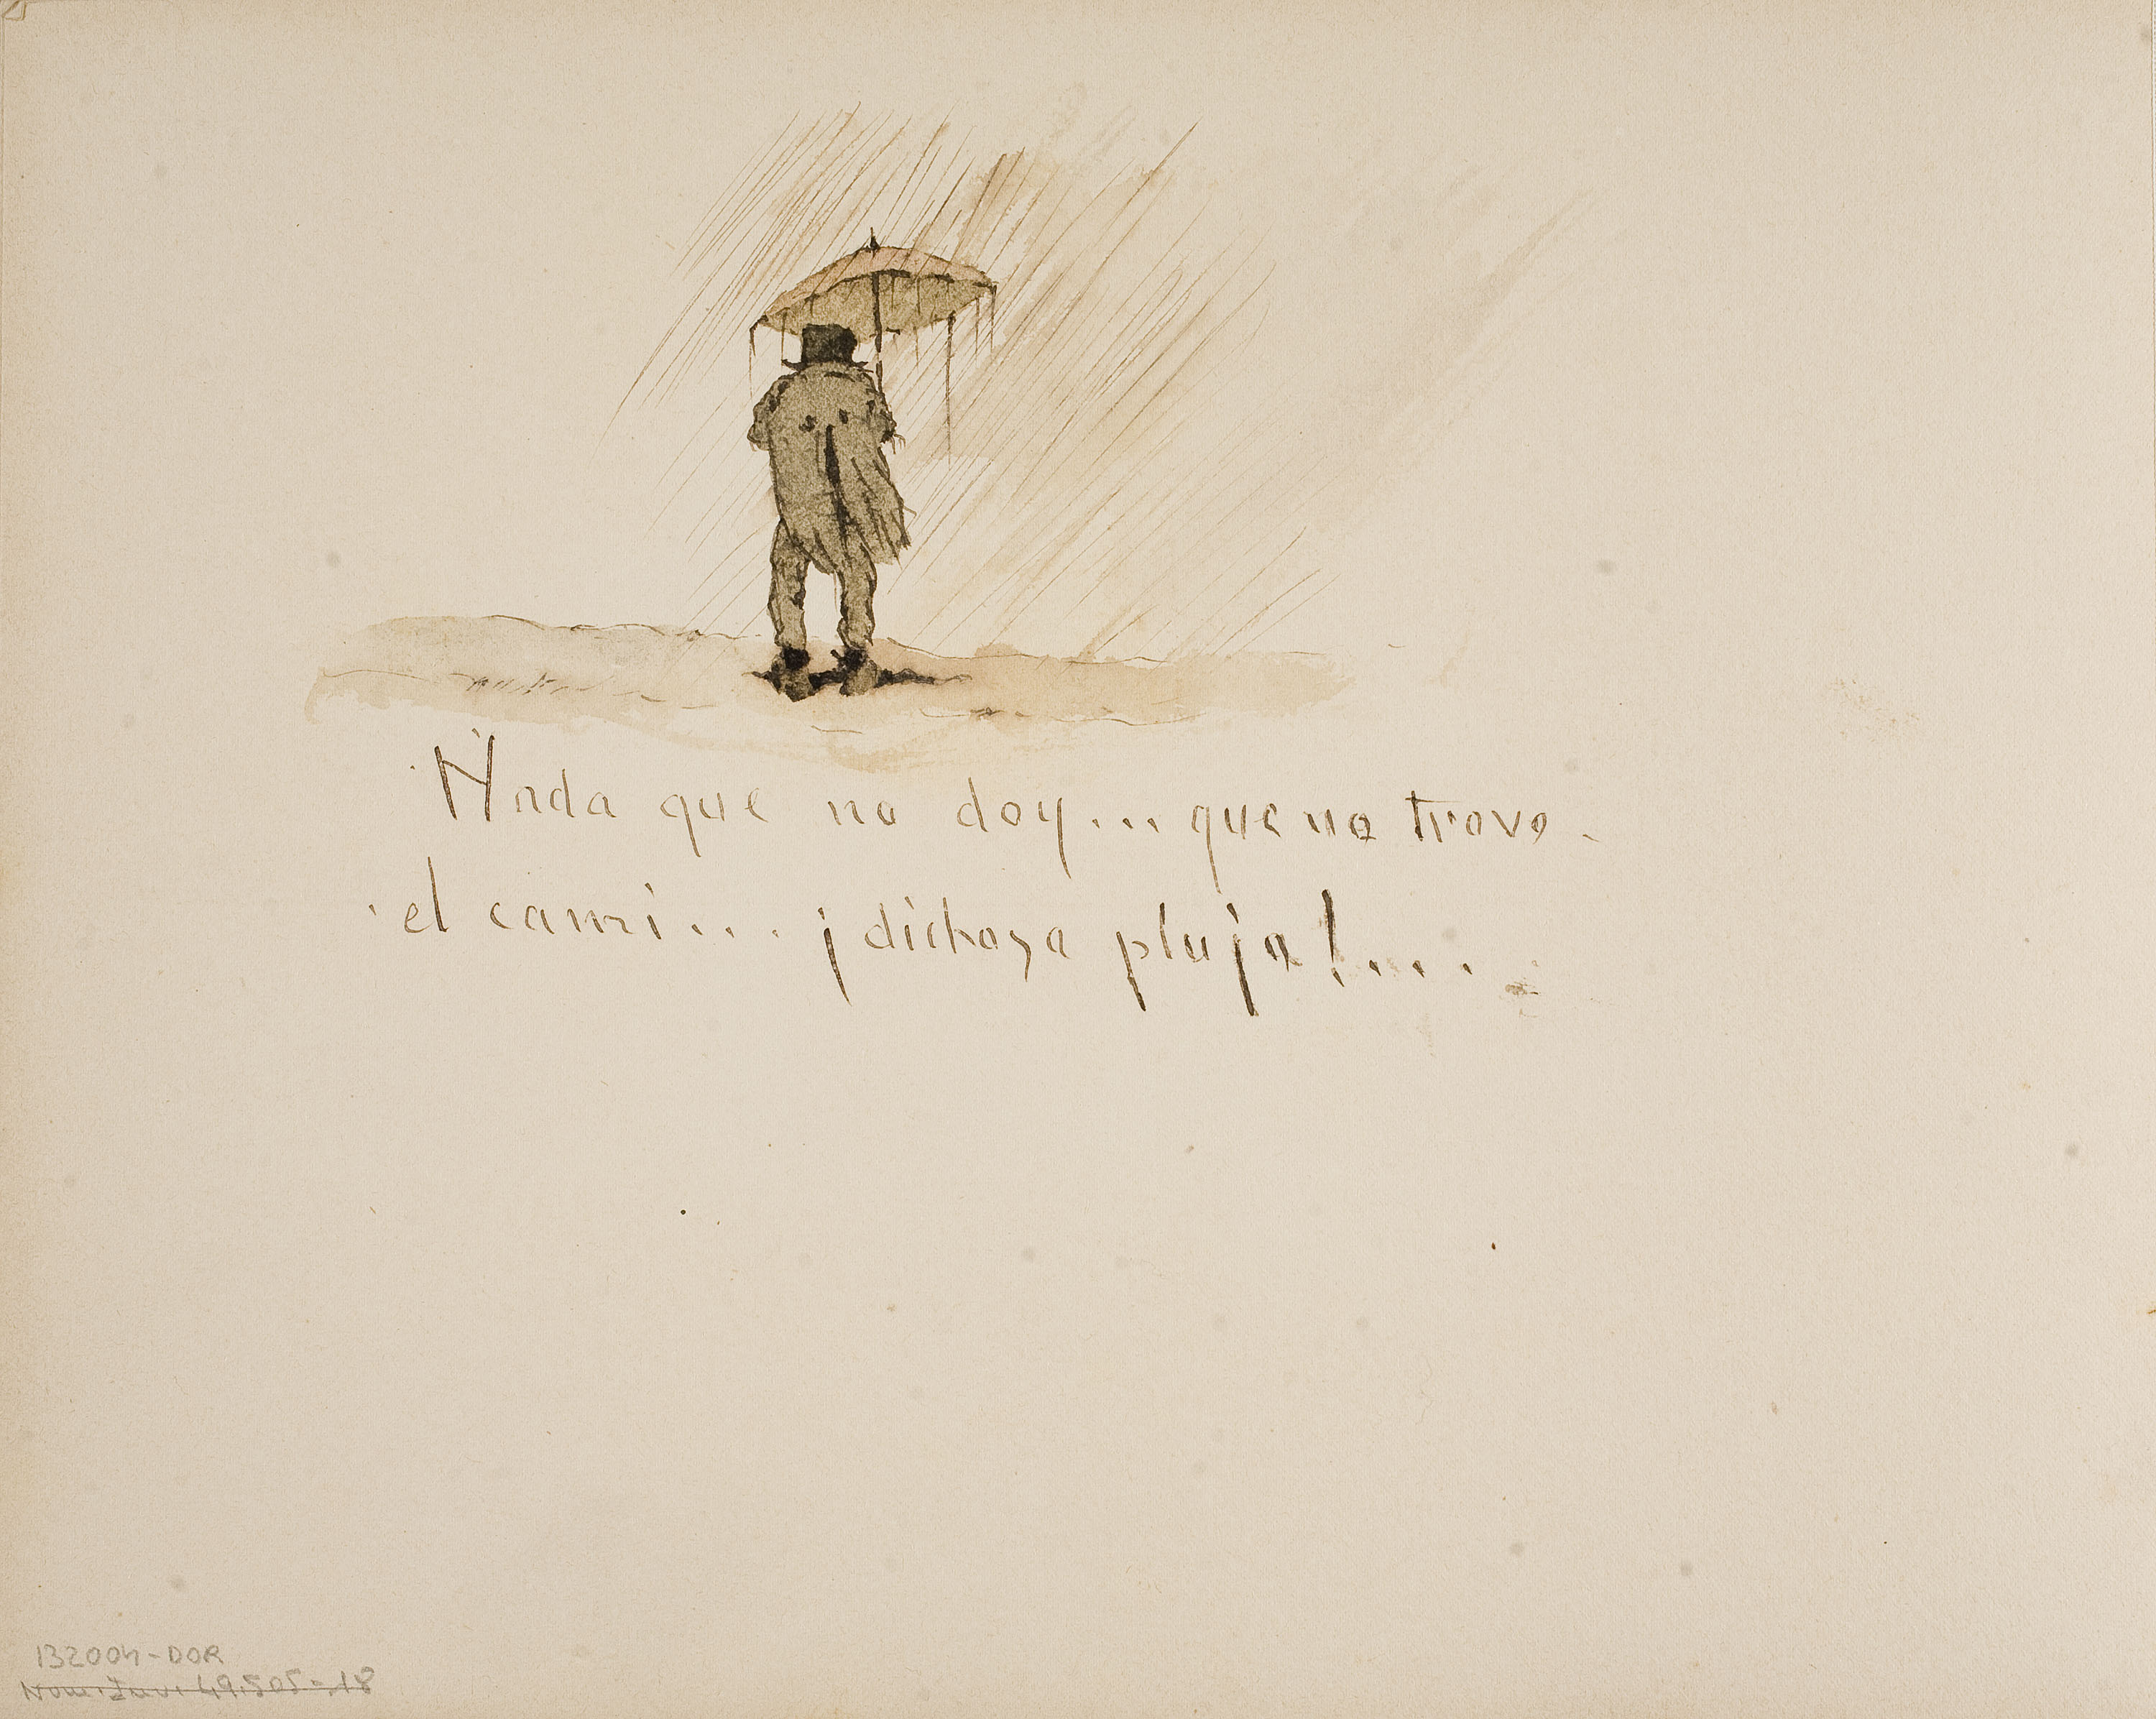 Nada que no doy... que no trovo
el cami... ¡dichosa pluja!....
132004-DOR
Núm. Inv. 49.505-18